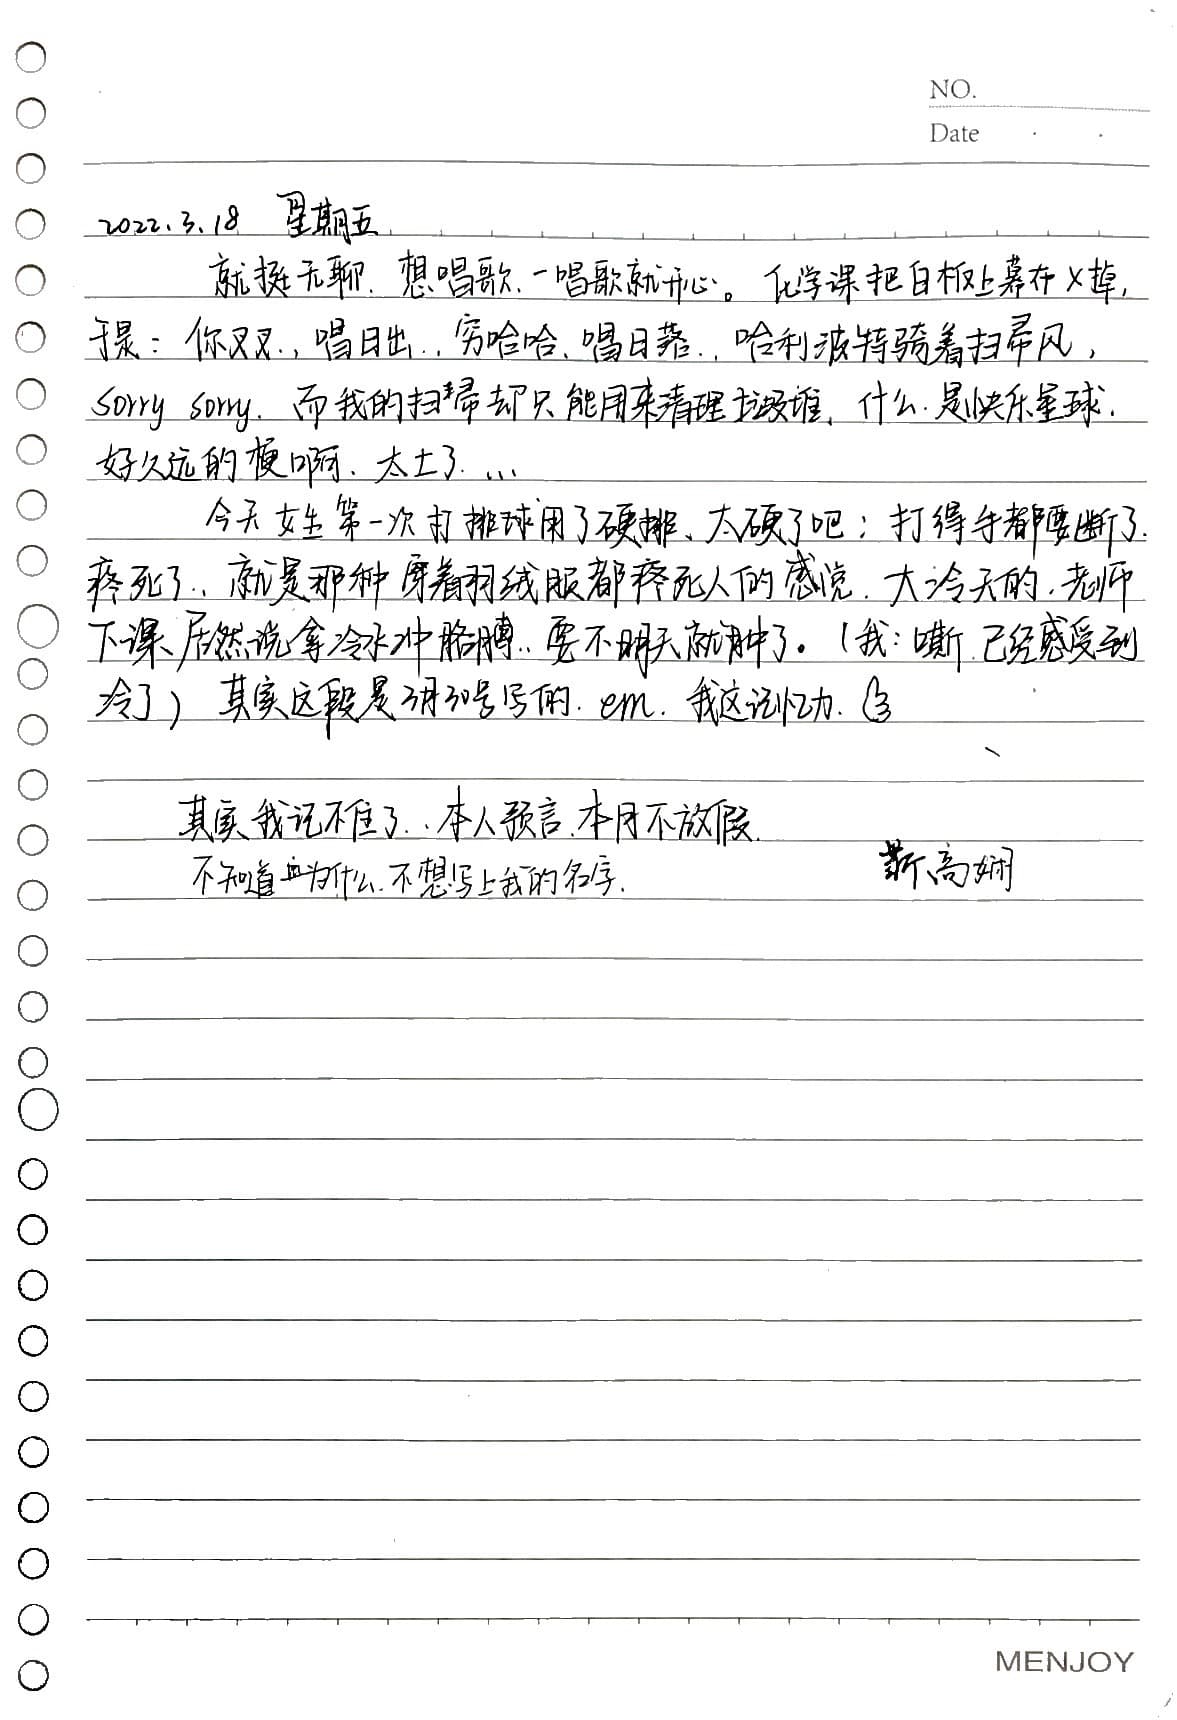 NO.
Date
2022.3.18 星期五
就挺无聊.想唱歌.一唱歌就开心。化学课把白板上幕布X掉,
于是:你叉叉..,唱日出..,穷哈哈、唱日落..,哈利波特骑着扫帚风,
sorry sorry.而我的扫帚却只能用来清理垃圾堆.什么.是快乐星球.
好久远的梗啊.太土了...
今天女生第一次打排球用了硬排、太硬了吧;打得手都要断了.
疼死了..就是那种穿着羽绒服都疼死人的感觉.大冷天的.老师
下课居然说拿冷水冲胳膊..要不明天就肿了。(我:嘶.已经感受到
冷了)其实这段是3月30号写的.em.我这记忆力.
其实我记不住了..本人预言.本月不放假.
不知道为什么.不想写上我的名字.
高娴
MENJOY